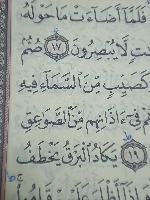 فَلَمَّا أَضَاءَتْ مَا حَوْلَهُ
لَّا يُبْصِرُونَ ١٧ صُمٌّ
كَصَيِّبٍ مِّنَ السَّمَاءِ فِيهِ
فِي ءَاذَانِهِم مِّنَ الصَّوَاعِقِ
١٩ يَكَادُ الْبَرْقُ يَخْطَفُ